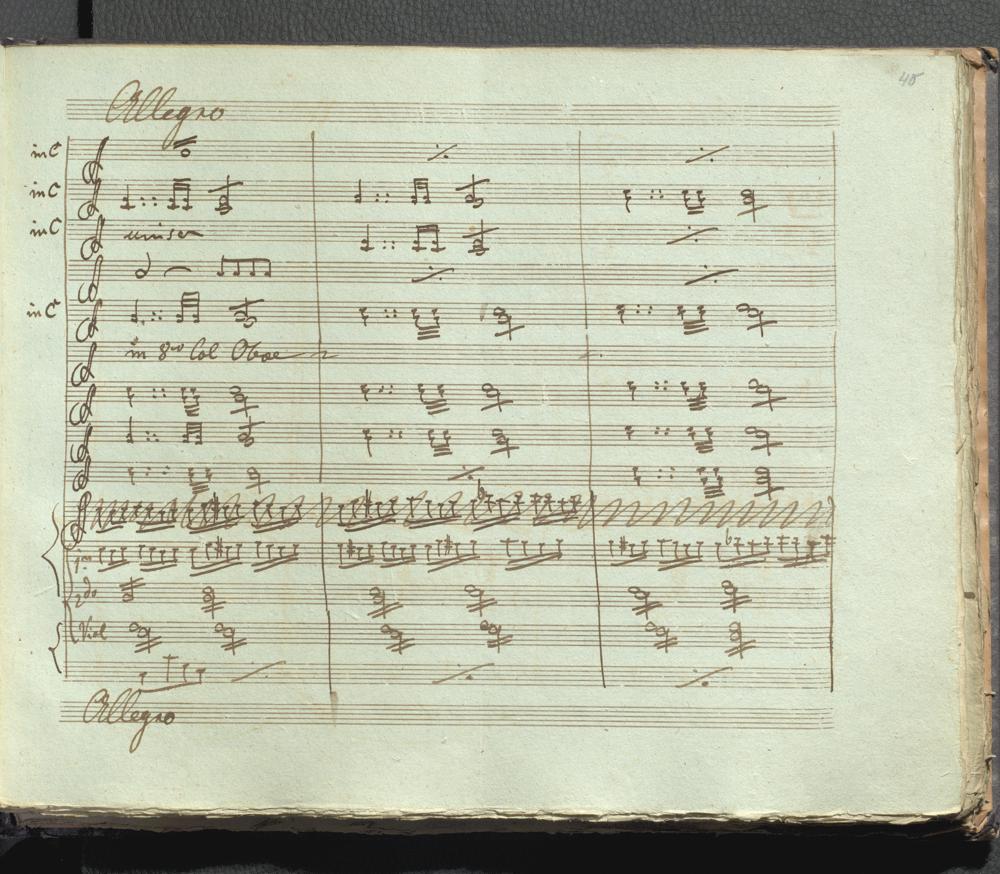 40
Allegro
in C
in C
in C
unison
in C
in 8va Col Oboe
1mo
2do
Viol
Allegro